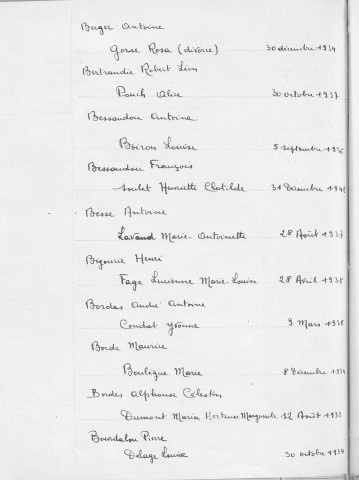 Berger Antoine
Gorse Rosa (divorce) 30 décembre 1934
Bertrandie Robert Léon
Pouch Alice 30 octobre 1937
Bessaudou Antoine
Boiron Louise 5 septembre
Bessaudou François
Soulet Henriette Clotilde 31 Décembre
Besse Antoine
Lavaud Marie-Antoinette 28 Août 1937
Bigourie Henri
Fage Lucienne Marie-Louise 28 Avril 1938
Bordas André Antoine
Condat Yvonne 9 Mars 1938
Borde Maurice
Bouligue Marie 8 Décembre
Bordes Alphonse Célestin
Dumont Maria Hortense Marguerite 12 Août 1933
Bourdalou Pierre
Delage Louise 30 octobre 1934